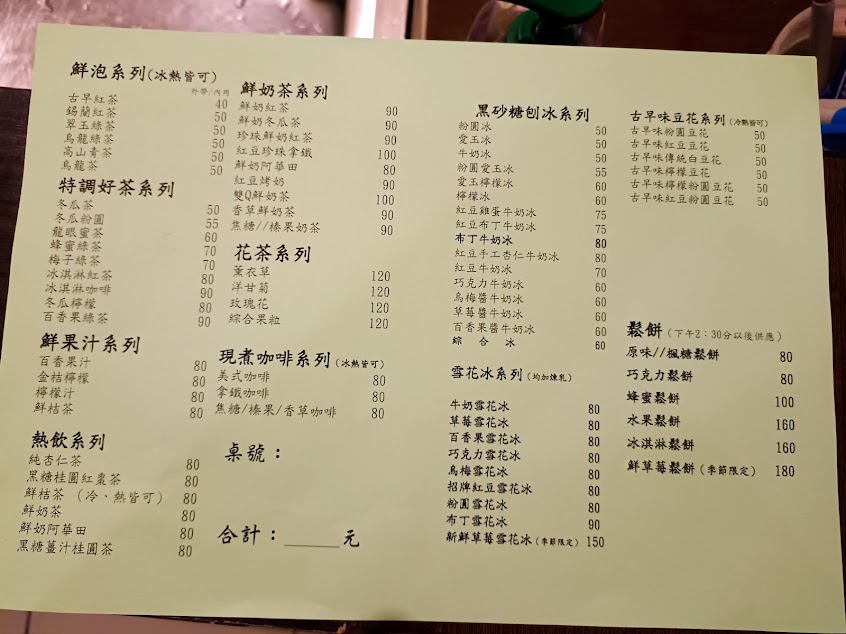 鮮泡系列(冰熱皆可)
外帶/內用
古早紅茶 40
錫蘭紅茶 50
翠玉綠茶 50
烏龍綠茶 50
高山青茶 50
烏龍茶 50
特調好茶系列
冬瓜茶 50
冬瓜粉圓 55
龍眼蜜茶 60
蜂蜜綠茶 70
梅子綠茶 70
冰淇淋紅茶 80
冰淇淋咖啡 90
冬瓜檸檬 80
百香果綠茶 90
鮮果汁系列
百香果汁 80
金桔檸檬 80
檸檬汁 80
鮮桔茶 80
熱飲系列
純杏仁茶 80
黑糖桂圓紅棗茶 80
鮮桔茶 (冷、熱皆可) 80
鮮奶茶 80
鮮奶阿華田 80
黑糖薑汁桂圓茶 80
鮮奶茶系列
鮮奶紅茶 90
鮮奶冬瓜茶 90
珍珠鮮奶紅茶 90
紅豆珍珠拿鐵 100
鮮奶阿華田 80
紅豆烤奶 90
雙Q鮮奶茶 100
香草鮮奶茶 90
焦糖//榛果奶茶 90
花茶系列
薰衣草 120
洋甘菊 120
玫瑰花 120
綜合果粒 120
現煮咖啡系列(冰熱皆可)
美式咖啡 80
拿鐵咖啡 80
焦糖/榛果/香草咖啡 80
桌號：
合計：______元
黑砂糖刨冰系列
粉圓冰 50
愛玉冰 50
牛奶冰 50
粉圓愛玉冰 55
愛玉檸檬冰 60
檸檬冰 60
紅豆雞蛋牛奶冰 75
紅豆布丁牛奶冰 75
布丁牛奶冰 80
紅豆手工杏仁牛奶冰 80
紅豆牛奶冰 70
巧克力牛奶冰 60
烏梅醬牛奶冰 60
草莓醬牛奶冰 60
百香果醬牛奶冰 60
綜 合 冰 60
雪花冰系列(均加煉乳)
牛奶雪花冰 80
草莓雪花冰 80
百香果雪花冰 80
巧克力雪花冰 80
烏梅雪花冰 80
招牌紅豆雪花冰 80
粉圓雪花冰 80
布丁雪花冰 90
新鮮草莓雪花冰(季節限定) 150
古早味豆花系列(冷熱皆可)
古早味粉圓豆花 50
古早味紅豆豆花 50
古早味傳統白豆花 50
古早味檸檬豆花 50
古早味檸檬粉圓豆花 50
古早味紅豆粉圓豆花 50
鬆餅(下午2：30分以後供應)
原味//楓糖鬆餅 80
巧克力鬆餅 80
蜂蜜鬆餅 100
水果鬆餅 160
冰淇淋鬆餅 160
鮮草莓鬆餅(季節限定) 180